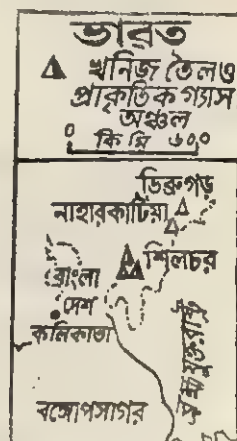 ভারত
খনিজ তৈল ও
প্রাকৃতিক গ্যাস
অঞ্চল
০ কি মি ৬০০
ডিব্রুগড়
নাহারকাটিয়া
শিলচর
বাংলা
দেশ
কলিকাতা
বঙ্গোপসাগর